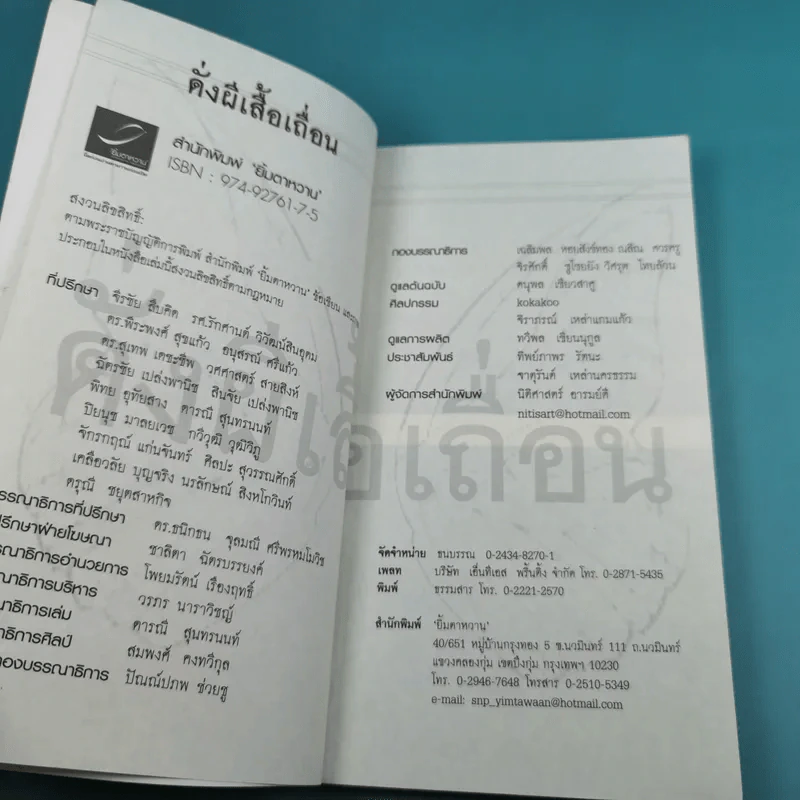 ดั่งผีเสื้อเถื่อน
ยิ้มตาหวาน
สำนักพิมพ์ 'ยิ้มตาหวาน'
ISBN : 974-92761-7-5
สงวนลิขสิทธิ์:
ตามพระราชบัญญัติการพิมพ์ สำนักพิมพ์ 'ยิ้มตาหวาน' ชื่อเขียน และภาพ
ประกอบในหนังสือเล่มนี้สงวนลิขสิทธิ์ตามกฎหมาย
ที่ปรึกษา จิรชัย สืบคิด รศ.รักศานต์ วิวัฒน์สินอุดม
ดร.พีระพงศ์ สุขแก้ว อนุสรณ์ ศรีแก้ว
ดร.สุเทพ เดชะชีพ วศศาสตร์ สายสิงห์
ฉัตรชัย เปล่งพานิช สินจัย เปล่งพานิช
พิทย อุทัยสาง ดารณี สุนทรนนท์
ปิยนุช มาลยเวช ทวีวุฒิ วุฒิวิภู
จักรกฤณ์ แก่นจันทร์ ศิลปะ สุวรรณศักดิ์
เคลือวลัย บุญจริง นรลักษณ์ สิงหโกวินท์
ดรุณี ชยุตสาหกิจ
รรณาธิการที่ปรึกษา ดร.ธนิกธน จุลมณี ศรีพรหมโมวิช
ปรึกษาฝ่ายโฆษณา ชาลิตา ฉัตรบรรยงค์
รณาธิการอำนวยการ โพยมรัตน์ เรืองฤทธิ์
ณาธิการบริหาร วรภร นาราวิชญ์
าธิการเล่ม ดารณี สุนทรนนท์
าธิการศิลป์ สมพงศ์ คงทวีกุล
กองบรรณาธิการ ปัณณ์ปภพ ช่วยชู
กองบรรณาธิการ เฉลิมพล หอยสังข์ทอง ณสิณ ควรครู
จิรศักดิ์ ชูโชยยิ่ง วิศรุต ไทยล้วน
ดูแลต้นฉบับ ดนุพล เชียวสาคู
ศิลปกรรม kokakoo
จิราภรณ์ เหล่าแกมแก้ว
ดูแลการผลิต ทวีพล เชียนนุกูล
ประชาสัมพันธ์ ทิพย์ภาพร รัตนะ
จาตุรันต์ เหล่านครธรรม
ผู้จัดการสำนักพิมพ์ นิติศาสตร์ อารมย์ดี
nitisart@hotmail.com
ดั่งผีเสื้อเถื่อน
จัดจำหน่าย ธนบรรณ 0-2434-8270-1
เพลท บริษัท เอ็นทีเอส พริ้นติ้ง จำกัด โทร. 0-2871-5435
พิมพ์ ธรรมสาร โทร. 0-2221-2570
สำนักพิมพ์ 'ยิ้มตาหวาน'
40/651 หมู่บ้านกรุงทอง 5 ซ.นวมินทร์ 111 ถ.นวมินทร์
แขวงคลองกุ่ม เขตบึงกุ่ม กรุงเทพฯ 10230
โทร. 0-2946-7648 โทรสาร 0-2510-5349
e-mail: snp_yimtawaan@hotmail.com